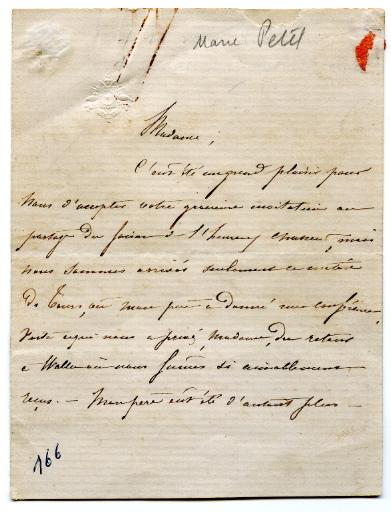 Marie Petit
Madame,
C'eut été un grand plaisir pour
nous d'accepter votre gracieuse invitation au
partage du faisan à l'heureux chasseur, mais
nous sommes arrivés seulement ce
de Tours, où mon père a donné une conférence.
Voilà ce qui nous a privé, Madame, du retour
à où nous fûmes si aimablement
reçus. — Mon père eût été d'autant plus —
166